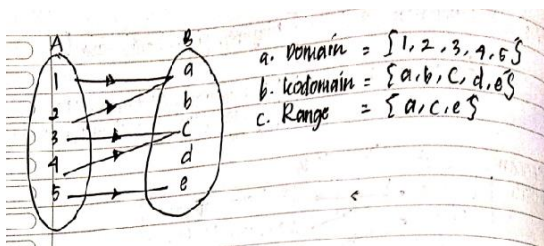 A B
1 a
2 b
3 c
4 d
5 e
a. Domain = {1, 2, 3, 4, 5}
b. kodomain = {a, b, c, d, e}
c. Range = {a, c, e}